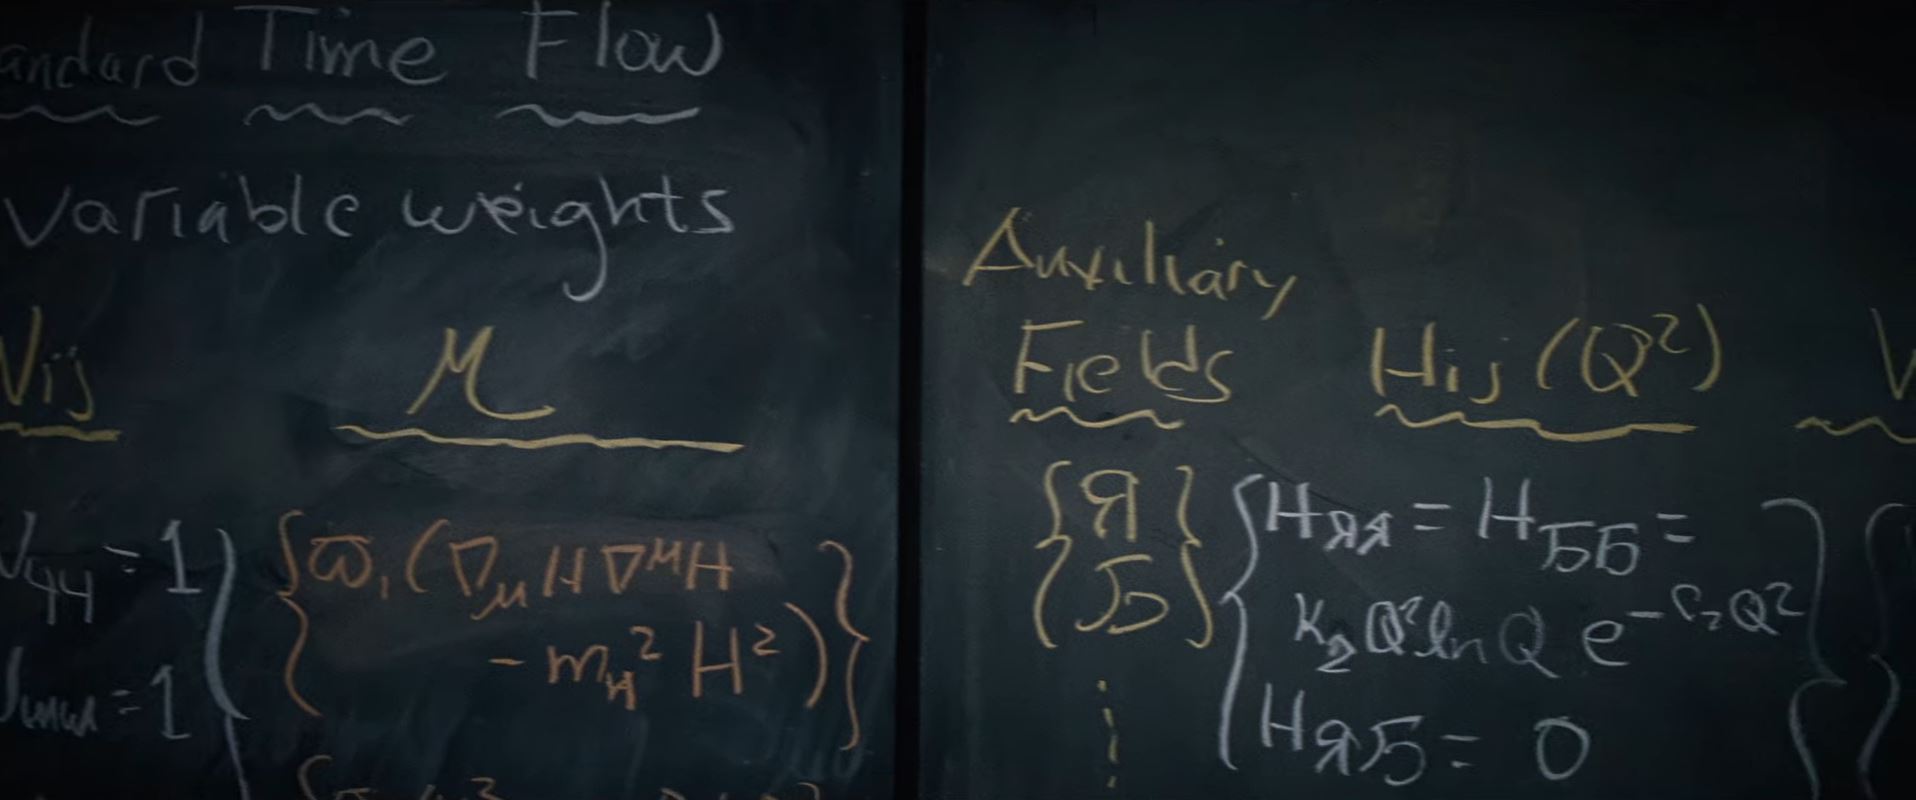 andard Time Flow
variable weights
Vij
M
V44 = 1
= 1
{ϖ₁(∇μH∇^μH
- m_H² H²)}
Auxiliary
Fields
Hij (Q²)
{Я}
{Б}
H_ЯЯ = H_ББ =
K₂Q²lnQ e^-C₂Q²
H_ЯБ = 0